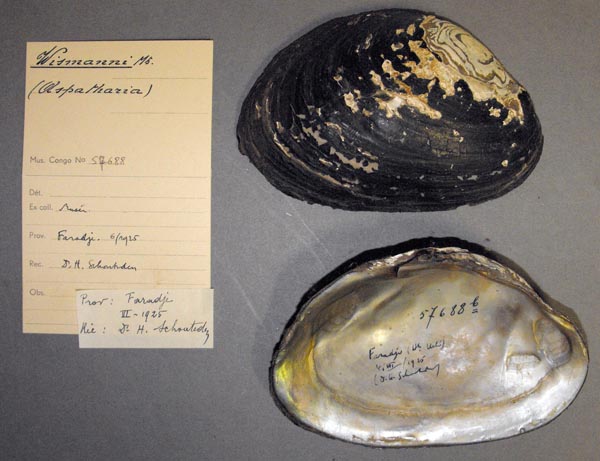 Wismanni Ms.
(Aspatharia)
Mus. Congo No 57688
Dét.
Ex coll.
Prov. Faradje. 6/1925
Rec. Dr. H. Schouteden
Obs.
Prov: Faradje
III-1925
Réc: Dr H. Schouteden
57688
Faradje
1925